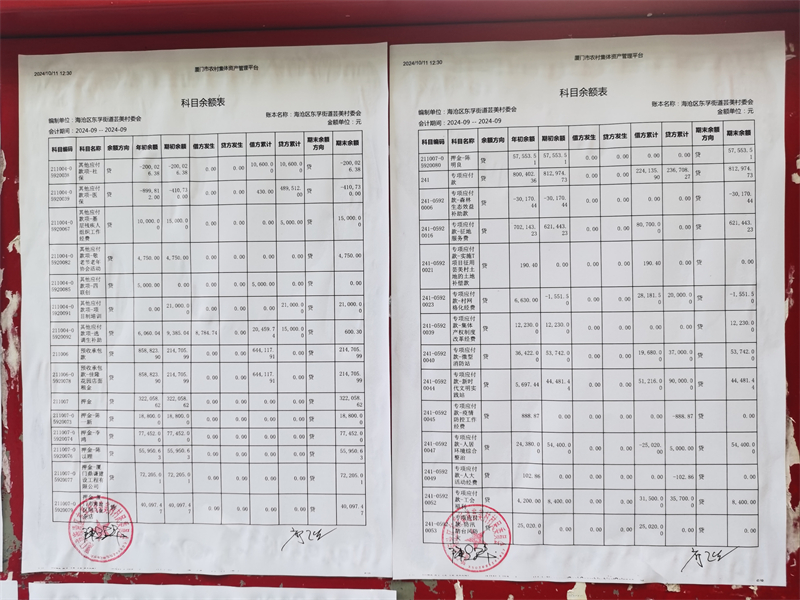 2024/10/11 12:30
厦门市农村集体资产管理平台
科目余额表
编制单位：海沧区东孚街道芸美村委会
账本名称：海沧区东孚街道芸美村委会
会计期间：2024-09 -- 2024-09
金额单位：元
科目编码 科目名称 余额方向 年初余额 期初余额 借方发生 贷方发生 借方累计 贷方累计 期末余额方向 期末余额
211004-05920039 其他应付款项-医保 贷 -899,812.00 -410,730.00 0.00 0.00 430.00 489,512.00 贷 -410,730.00
211004-05920067 其他应付款项-基层残疾人组织工作经费 贷 10,000.00 15,000.00 0.00 0.00 0.00 5,000.00 贷 15,000.00
211004-05920082 其他应付款项-敬老节老年协会活动 贷 4,750.00 4,750.00 0.00 0.00 0.00 0.00 贷 4,750.00
贷 5,000.00 0.00 0.00 0.00 5,000.00 0.00 贷 0.00
211004-05920091 贷 0.00 21,000.00 0.00 0.00 0.00 21,000.00 贷 21,000.00
211004-05920092 其他应付款项-选调生补助 贷 6,060.04 9,385.04 8,784.74 0.00 20,459.74 15,000.00 贷 600.30
211006 预收承包款 贷 858,823.90 214,705.99 0.00 0.00 644,117.91 0.00 贷 214,705.99
贷 858,823.90 214,705.99 0.00 0.00 644,117.91 0.00 贷 214,705.99
211007 押金 贷 322,058.62 322,058.62 0.00 0.00 0.00 0.00 贷 322,058.62
贷 18,800.00 18,800.00 0.00 0.00 0.00 0.00 贷 18,800.00
贷 77,452.00 77,452.00 0.00 0.00 0.00 0.00 贷 77,452.00
贷 55,950.63 55,950.63 0.00 0.00 0.00 0.00 贷 55,950.63
贷 0.00 0.00 0.00 0.00 贷
贷 40,097.47 40,097.47 0.00 0.00 0.00 0.00 贷 40,097.47
2024/10/11 12:30
厦门市农村集体资产管理平台
科目余额表
编制单位：海沧区东孚街道芸美村委会
账本名称：海沧区东孚街道芸美村委会
会计期间：2024-09 -- 2024-09
金额单位：元
科目编码 科目名称 余额方向 年初余额 期初余额 借方发生 贷方发生 借方累计 贷方累计 期末余额方向 期末余额
211007-05920080 押金-陈明良 贷 57,553.51 57,553.51 0.00 0.00 0.00 0.00 贷 57,553.51
241 专项应付款 贷 800,402.36 812,974.73 0.00 0.00 224,135.90 236,708.27 贷 812,974.73
241-05920006 专项应付款-森林生态效益补助款 贷 -30,170.44 -30,170.44 0.00 0.00 0.00 0.00 贷 -30,170.44
241-05920016 专项应付款-征地服务费 贷 702,143.23 621,443.23 0.00 0.00 80,700.00 0.00 贷 621,443.23
241-05920021 贷 190.40 0.00 0.00 0.00 190.40 0.00 贷 0.00
241-05920023 专项应付款-村网格化经费 贷 6,630.00 -1,551.50 0.00 0.00 28,181.50 20,000.00 贷 -1,551.50
241-05920039 专项应付款-集体产权制度改革经费 贷 12,230.00 12,230.00 0.00 0.00 0.00 0.00 贷 12,230.00
241-05920040 专项应付款-微型消防站 贷 36,422.00 53,742.00 0.00 0.00 19,680.00 37,000.00 贷 53,742.00
241-05920044 专项应付款-新时代文明实践站 贷 5,697.44 44,481.44 0.00 0.00 51,216.00 90,000.00 贷 44,481.44
241-05920045 专项应付款-疫情防控工作经费 贷 888.87 0.00 0.00 0.00 0.00 -888.87 贷 0.00
241-05920047 专项应付款-人居环境综合整治 贷 24,380.00 54,400.00 0.00 0.00 -25,020.00 5,000.00 贷 54,400.00
241-05920049 专项应付款-人大活动经费 贷 102.86 0.00 0.00 0.00 0.00 -102.86 贷 0.00
241-05920052 贷 4,200.00 8,400.00 0.00 0.00 31,500.00 35,700.00 贷 8,400.00
241-05920053 贷 25,020.00 0.00 0.00 0.00 25,020.00 0.00 贷 0.00